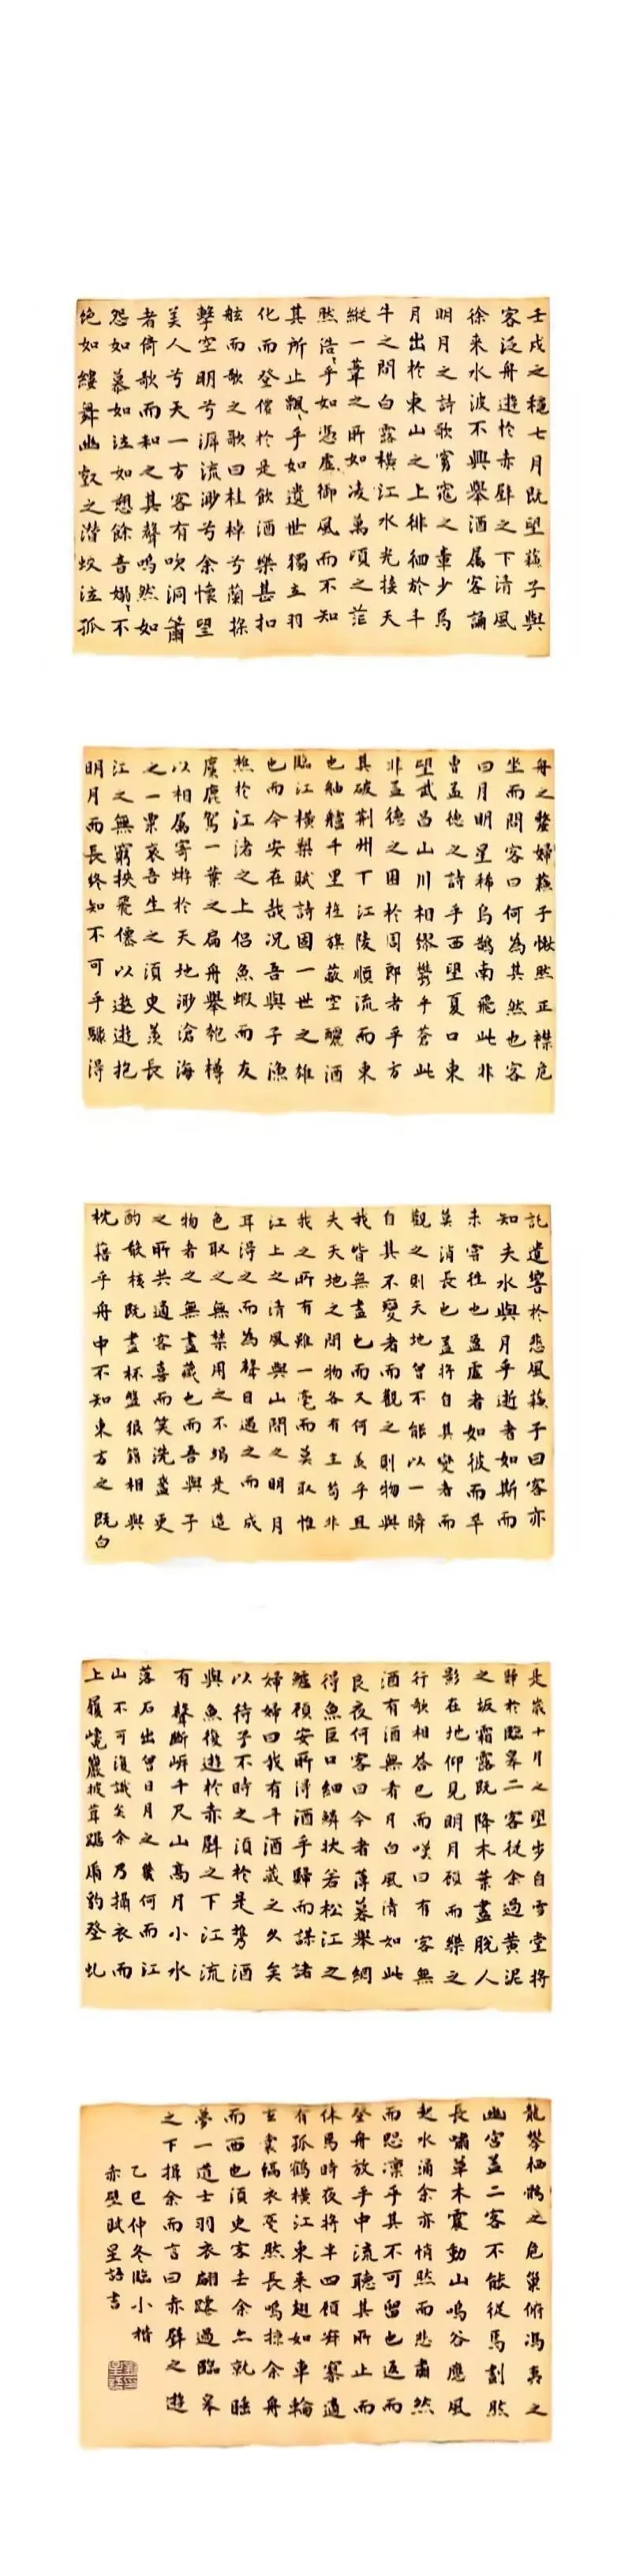 壬戌之穐七月既望蘇子與
客泛舟遊於赤壁之下清風
徐来水波不興舉酒属客誦
明月之詩歌窈窕之章少焉
月出於東山之上徘徊於斗
牛之間白露横江水光接天
縱一葦之所如凌萬頃之茫
然浩〻乎如馮虚御風而不知
其所止飄〻乎如遺世獨立羽
化而登僊於是飲酒樂甚扣
舷而歌之歌曰桂棹兮蘭槳
擊空明兮泝流渺兮余懷望
美人兮天一方客有吹洞簫
者倚歌而和之其聲嗚然如
怨如慕如泣如愬餘音嫋〻不
絶如縷舞幽壑之潛蛟泣孤
舟之嫠婦蘇子愀然正襟危
坐而問客曰何為其然也客
曰月明星稀烏鵲南飛此非
曹孟徳之詩乎西望夏口東
望武昌山川相繆鬱乎蒼此
非孟德之困於周郎者乎方
其破荆州下江陵順流而東
也舳艫千里旌旗蔽空釃酒
臨江橫槊賦詩固一世之雄
也而今安在哉况吾與子漁
樵於江渚之上侣魚蝦而友
麋鹿駕一葉之扁舟舉匏樽
以相属寄蜉於天地渺滄海
之一粟哀吾生之須臾羨長
江之無窮挾飛僊以遨遊抱
明月而長终知不可乎驟得
託遺響於悲風蘇子曰客亦
知夫水與月乎逝者如斯而
未甞往也盈虚者如彼而卒
莫消長也盖将自其變者而
觀之則天地曾不能以一瞬
自其不變者而觀之則物與
我皆無盡也而又何羨乎且
夫天地之間物各有主苟非
我之所有雖一毫而莫取惟
江上之清風與山間之明月
耳得之而為聲目遇之而成
色取之無禁用之不竭是造
物者之無盡藏也而吾與子
之所共適客喜而笑洗盞更
酌肴核既盡杯盤狼籍相與
枕藉乎舟中不知東方之既白
是嵗十月之望步自雪堂将
歸於臨皋二客從余過黄泥
之坂霜露既降木葉盡脱人
影在地仰見明月顧而樂之
行歌相答已而嘆曰有客無
酒有酒無肴月白風清如此
良夜何客曰今者薄暮舉網
得魚巨口細鱗状若松江之
鱸顧安所得酒乎歸而謀諸
婦婦曰我有斗酒藏之久矣
以待子不時之須於是携酒
與魚復遊於赤壁之下江流
有聲斷岸千尺山高月小水
落石出曾日月之幾何而江
山不可復識矣余乃攝衣而
上履巉巖披茸踞虎豹登虬
龍攀栖鶻之危巢俯馮夷之
幽宫盖二客不能從焉劃然
長嘯草木震動山鳴谷應風
起水涌余亦悄然而悲肅然
而恐凛乎其不可留也返而
登舟放乎中流聽其所止而
休焉時夜将半四顧寂寥適
有孤鶴横江東来翅如車輪
玄裳縞衣戛然長鳴掠余舟
而西也須臾客去余亦就睡
夢一道士羽衣翩躚過臨皋
之下揖余而言曰赤壁之遊
乙巳仲冬臨小楷
赤壁賦星語書